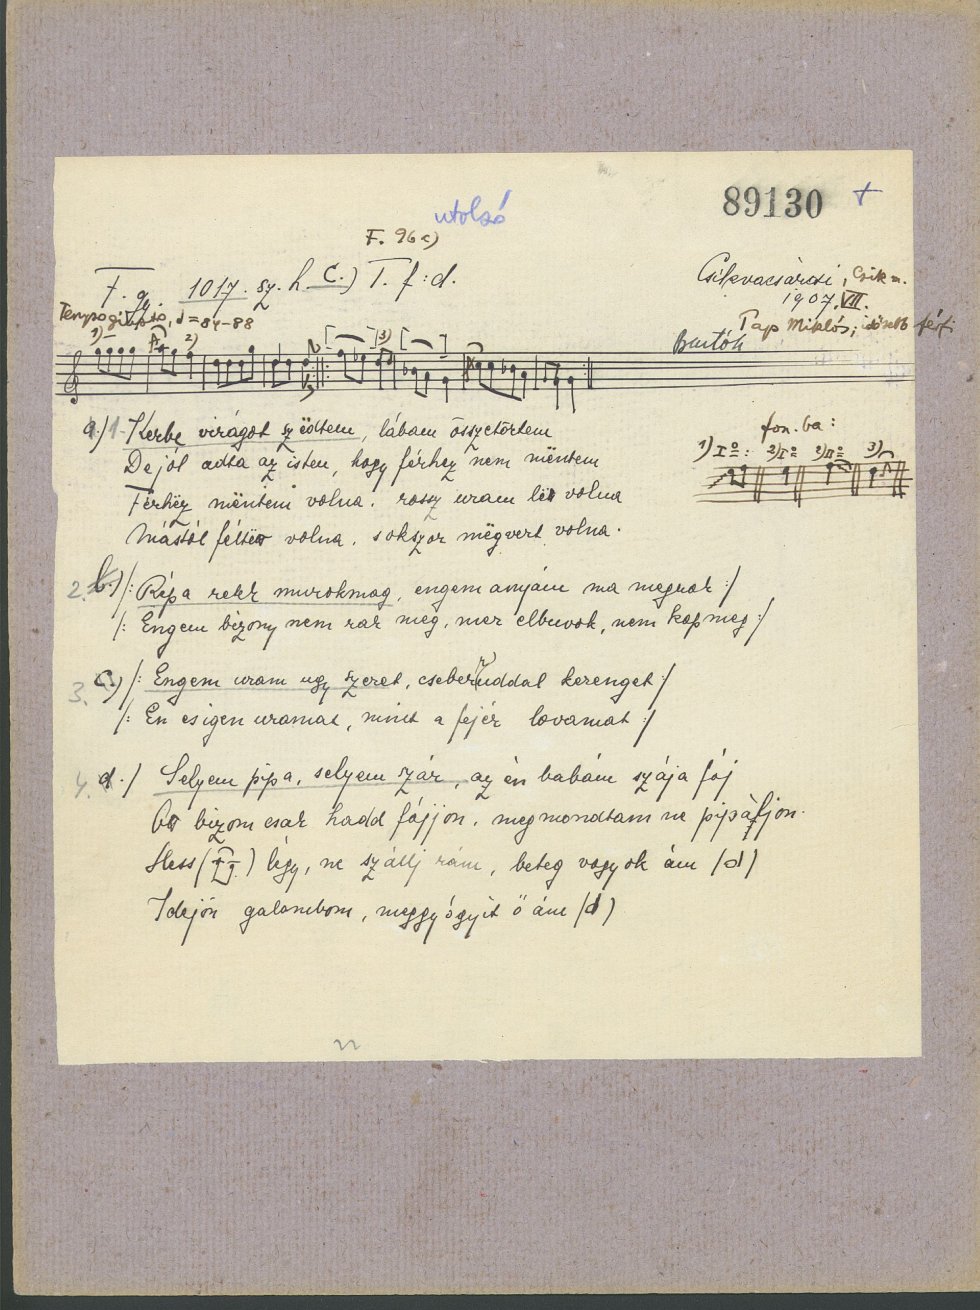 89130 +
utolsó
F. 96 c)
F. gy. 1017. sz. h. C.) T. f: d.
Csíkvacsárcsi, Csík m.
1907. VII.
Tempo giusto, ♩=84-88
Pap Miklós, idősebb férfi
Bartók
1) 2) 3)
fon. ba:
1) Iº: 2) Iº 2) IIº 3)
a./ 1. Kerbe virágot szëdtem, lábam összetörtem
De jól adta az isten, hogy férhez nem mëntem
Férhëz mëntem volna, rossz uram lët volna
Mástól féltëtt volna, sokszor mëgvert volna.
2. b.) /: Répa rekk murokmag, engem anyám ma megrak :/
/: Engem bizony nem rak meg, mer elbuvok, nem kap meg :/
3. c) /: Engem uram ugy szeret, cseberruddal kerenget :/
/: Én es igen uramat, mint a fejér lovamat :/
4. d./ Selyem pipa, selyem szár, az én babám szája fáj
bizom csak hadd fájjon, megmondtam ne pipáljon.
Hess ( ) légy, ne szállj rám, beteg vagyok ám (d)
Idejön galambom, meggyógyit ő ám (d)